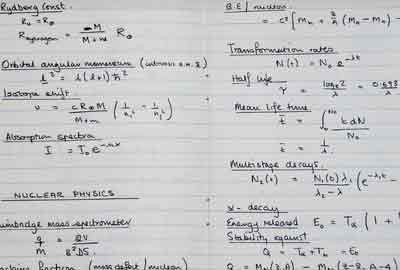 Rydberg Const.
R₀ = R∞
R_hydrogen = M / (M + m) R∞
Orbital angular momentum
l² = l(l+1) ħ²
Isotope shift.
ν = cR∞M / (M+m) (1/n₁² − 1/n₂²)
Absorption spectra
I = I₀ e
NUCLEAR PHYSICS
mass spectrometer
q/m =
fraction (mass defect / nucleon)
B.E / nucleon
= c² [ Mn + (Mn − Mn) −
Transformation rates
N(t) = N₀ e^−λt
Half life
τ = log_e 2 / λ = 0.693
Mean life time
t̄ = ∫ t dN / N₀
t̄ = 1/λ
Multistage decays.
N₂(t) = N₁(0) λ₁ / (λ₂ − λ₁) ( e^−λ₁t −
α - decay
Energy released E₀ = Tα ( 1 +
Stability against
Q = Tα + Tb = E₀